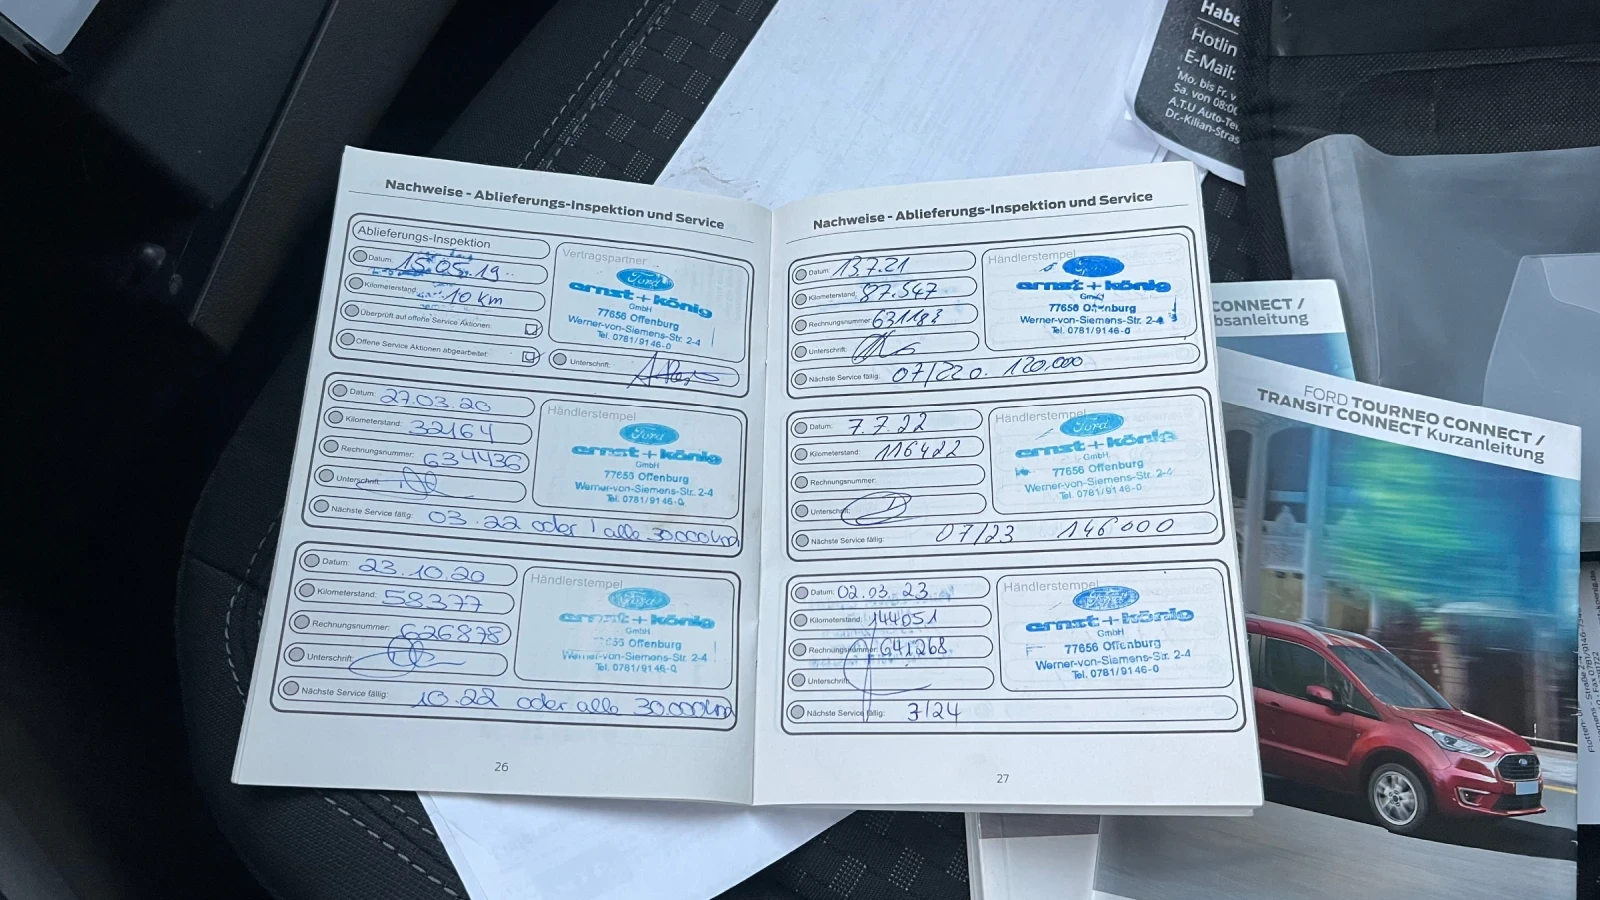 Nachweise - Ablieferungs-Inspektion und Service
Ablieferungs-Inspektion
Datum: 15.05.19
Kilometerstand: 10 km
Überprüft auf offene Service Aktionen:
Offene Service Aktionen abgearbeitet:
Vertragspartner
Ford
ernst+könig
GmbH
77656 Offenburg
Werner-von-Siemens-Str. 2-4
Tel. 0781/9146-0
Unterschrift:
Datum: 27.03.20
Kilometerstand: 32164
Rechnungsnummer: 634436
Unterschrift:
Händlerstempel
Ford
ernst+könig
GmbH
77656 Offenburg
Werner-von-Siemens-Str. 2-4
Tel. 0781/9146-0
Nächste Service fällig: 03.22 oder alle 30000km
Datum: 23.10.20
Kilometerstand: 58377
Rechnungsnummer: 626878
Unterschrift:
Händlerstempel
Ford
ernst+könig
GmbH
Offenburg
Werner-von-Siemens-Str. 2-4
Tel. 0781/9146-0
Nächste Service fällig: 10.22 oder alle 30000km
26
Nachweise - Ablieferungs-Inspektion und Service
Datum: 13.7.21
Kilometerstand: 87.547
Rechnungsnummer: 631183
Unterschrift:
Händlerstempel
ernst+könig
GmbH
77656 Offenburg
Werner-von-Siemens-Str. 2-4
Tel. 0781/9146-0
Nächste Service fällig: 07/220. 120.000
Datum: 7.7.22
Kilometerstand: 116422
Rechnungsnummer:
Unterschrift:
Händlerstempel
Ford
ernst+könig
GmbH
77656 Offenburg
Werner-von-Siemens-Str. 2-4
Tel. 0781/9146-0
Nächste Service fällig: 07/23 146000
Datum: 02.03.23
Kilometerstand: 144051
Rechnungsnummer: 641268
Unterschrift:
Händlerstempel
Ford
ernst+könig
GmbH
77656 Offenburg
Werner-von-Siemens-Str. 2-4
Tel. 0781/9146-0
Nächste Service fällig: 3/24
27
Habe
Hotlin
E-Mail:
*Mo. bis Fr. v
Sa. von 08:00
A.T.U Auto-Tei
Dr.-Kilian-Stras
CONNECT /
bsanleitung
FORD TOURNEO CONNECT /
TRANSIT CONNECT Kurzanleitung